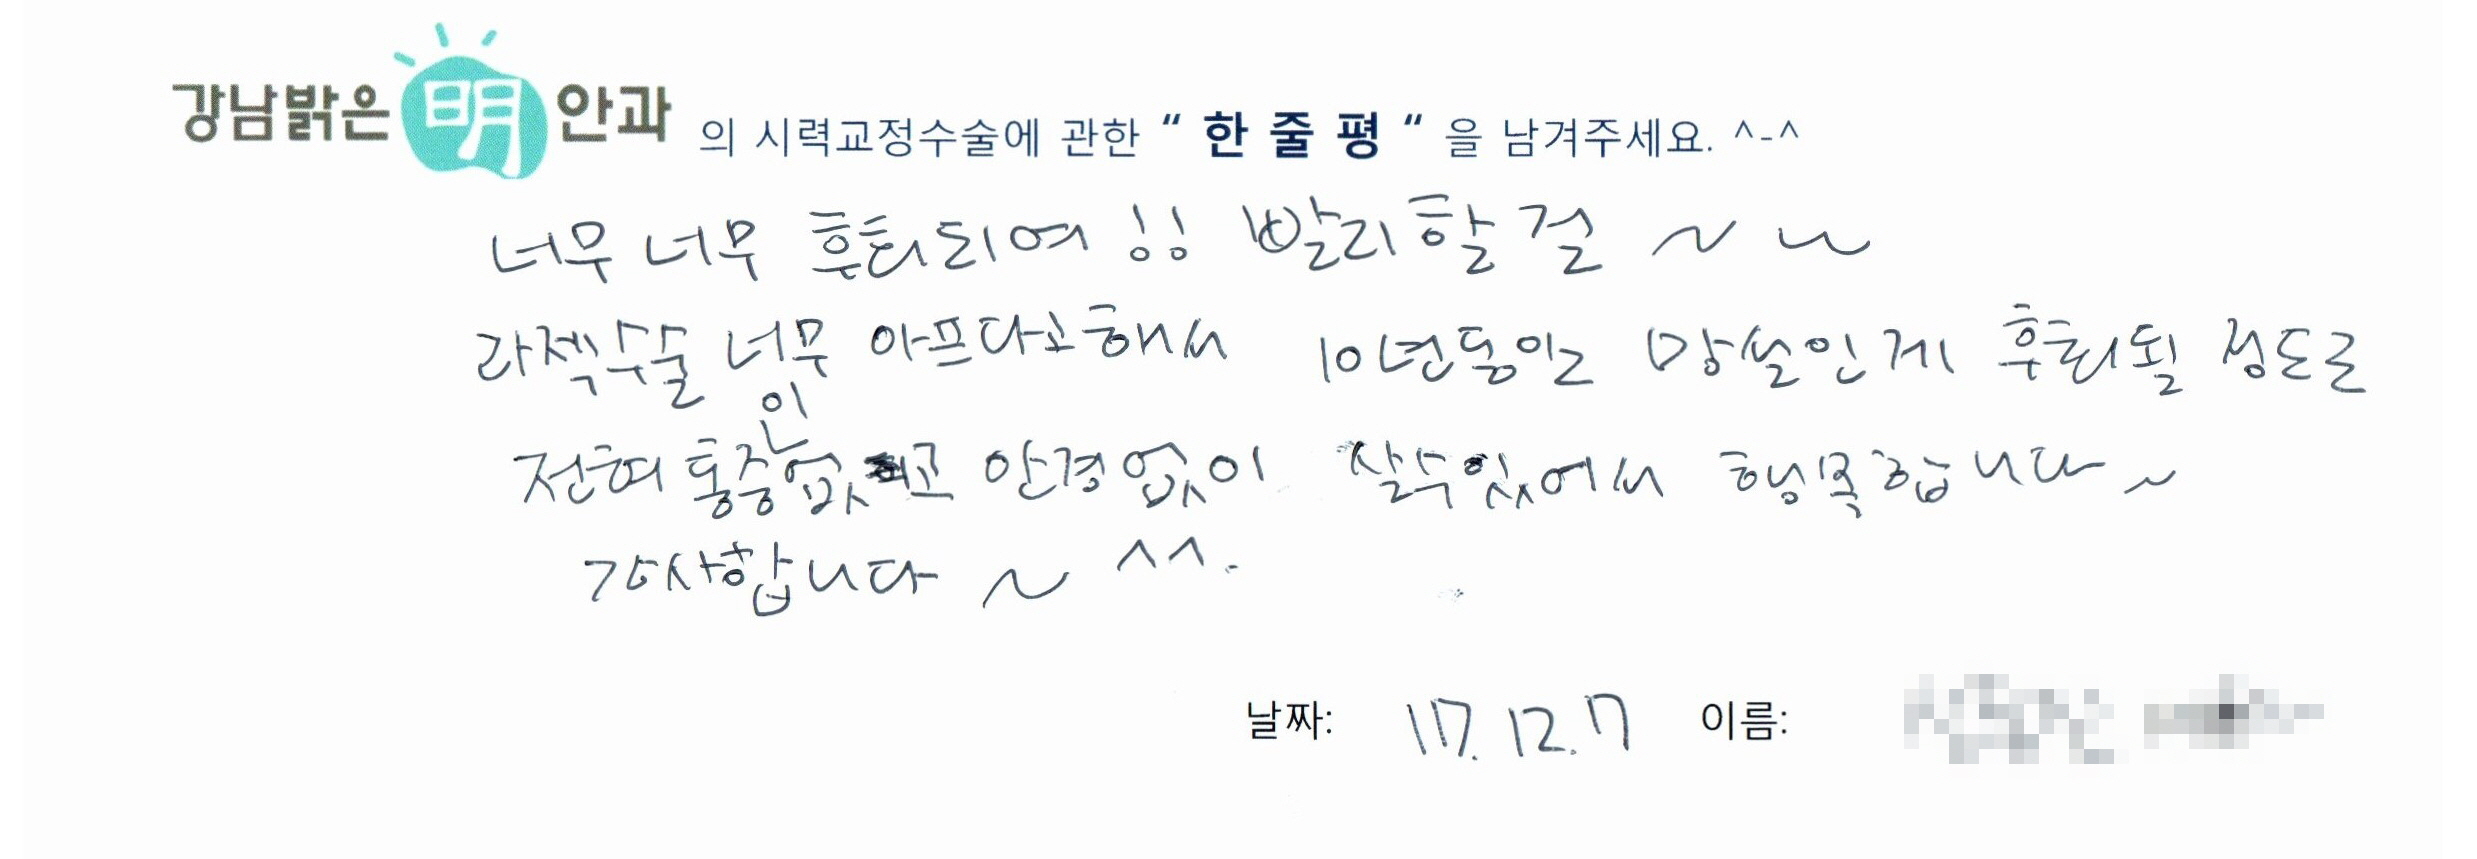 강남밝은 明 안과 의 시력교정수술에 관한 “ 한 줄 평 “ 을 남겨주세요. ^-^
너무 너무 후회되여 !! 빨리할걸 ~ ~
라젝수술 너무 아프다고해서 10년동안 망설인게 후회될 정도로
전혀 통증이 없고 안경 없이 살수있어서 행복합니다 ~
감사합니다 ~ ^^.
날짜: 17. 12. 7 이름: